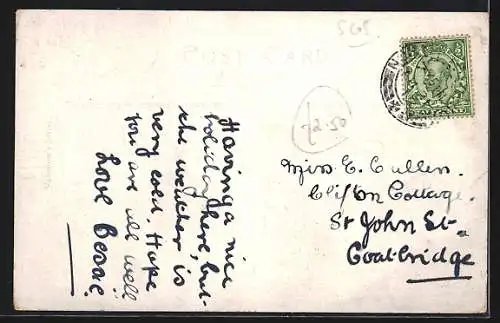 565
POST CARD
£2.50
Having a nice
holiday here, but
the weather is
very cold. Hope
you are all well
Love Bessie
Miss E. Cullen.
Clifton Cottage.
St John St.
Coatbridge